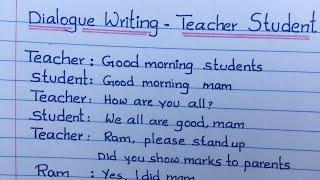 Dialogue Writing - Teacher Student
Teacher : Good morning students
Student: Good morning mam
Teacher: How are you all?
Student: We all are good, mam
Teacher: Ram, please stand up
Did you show marks to parents
Ram : Yes, I did mam